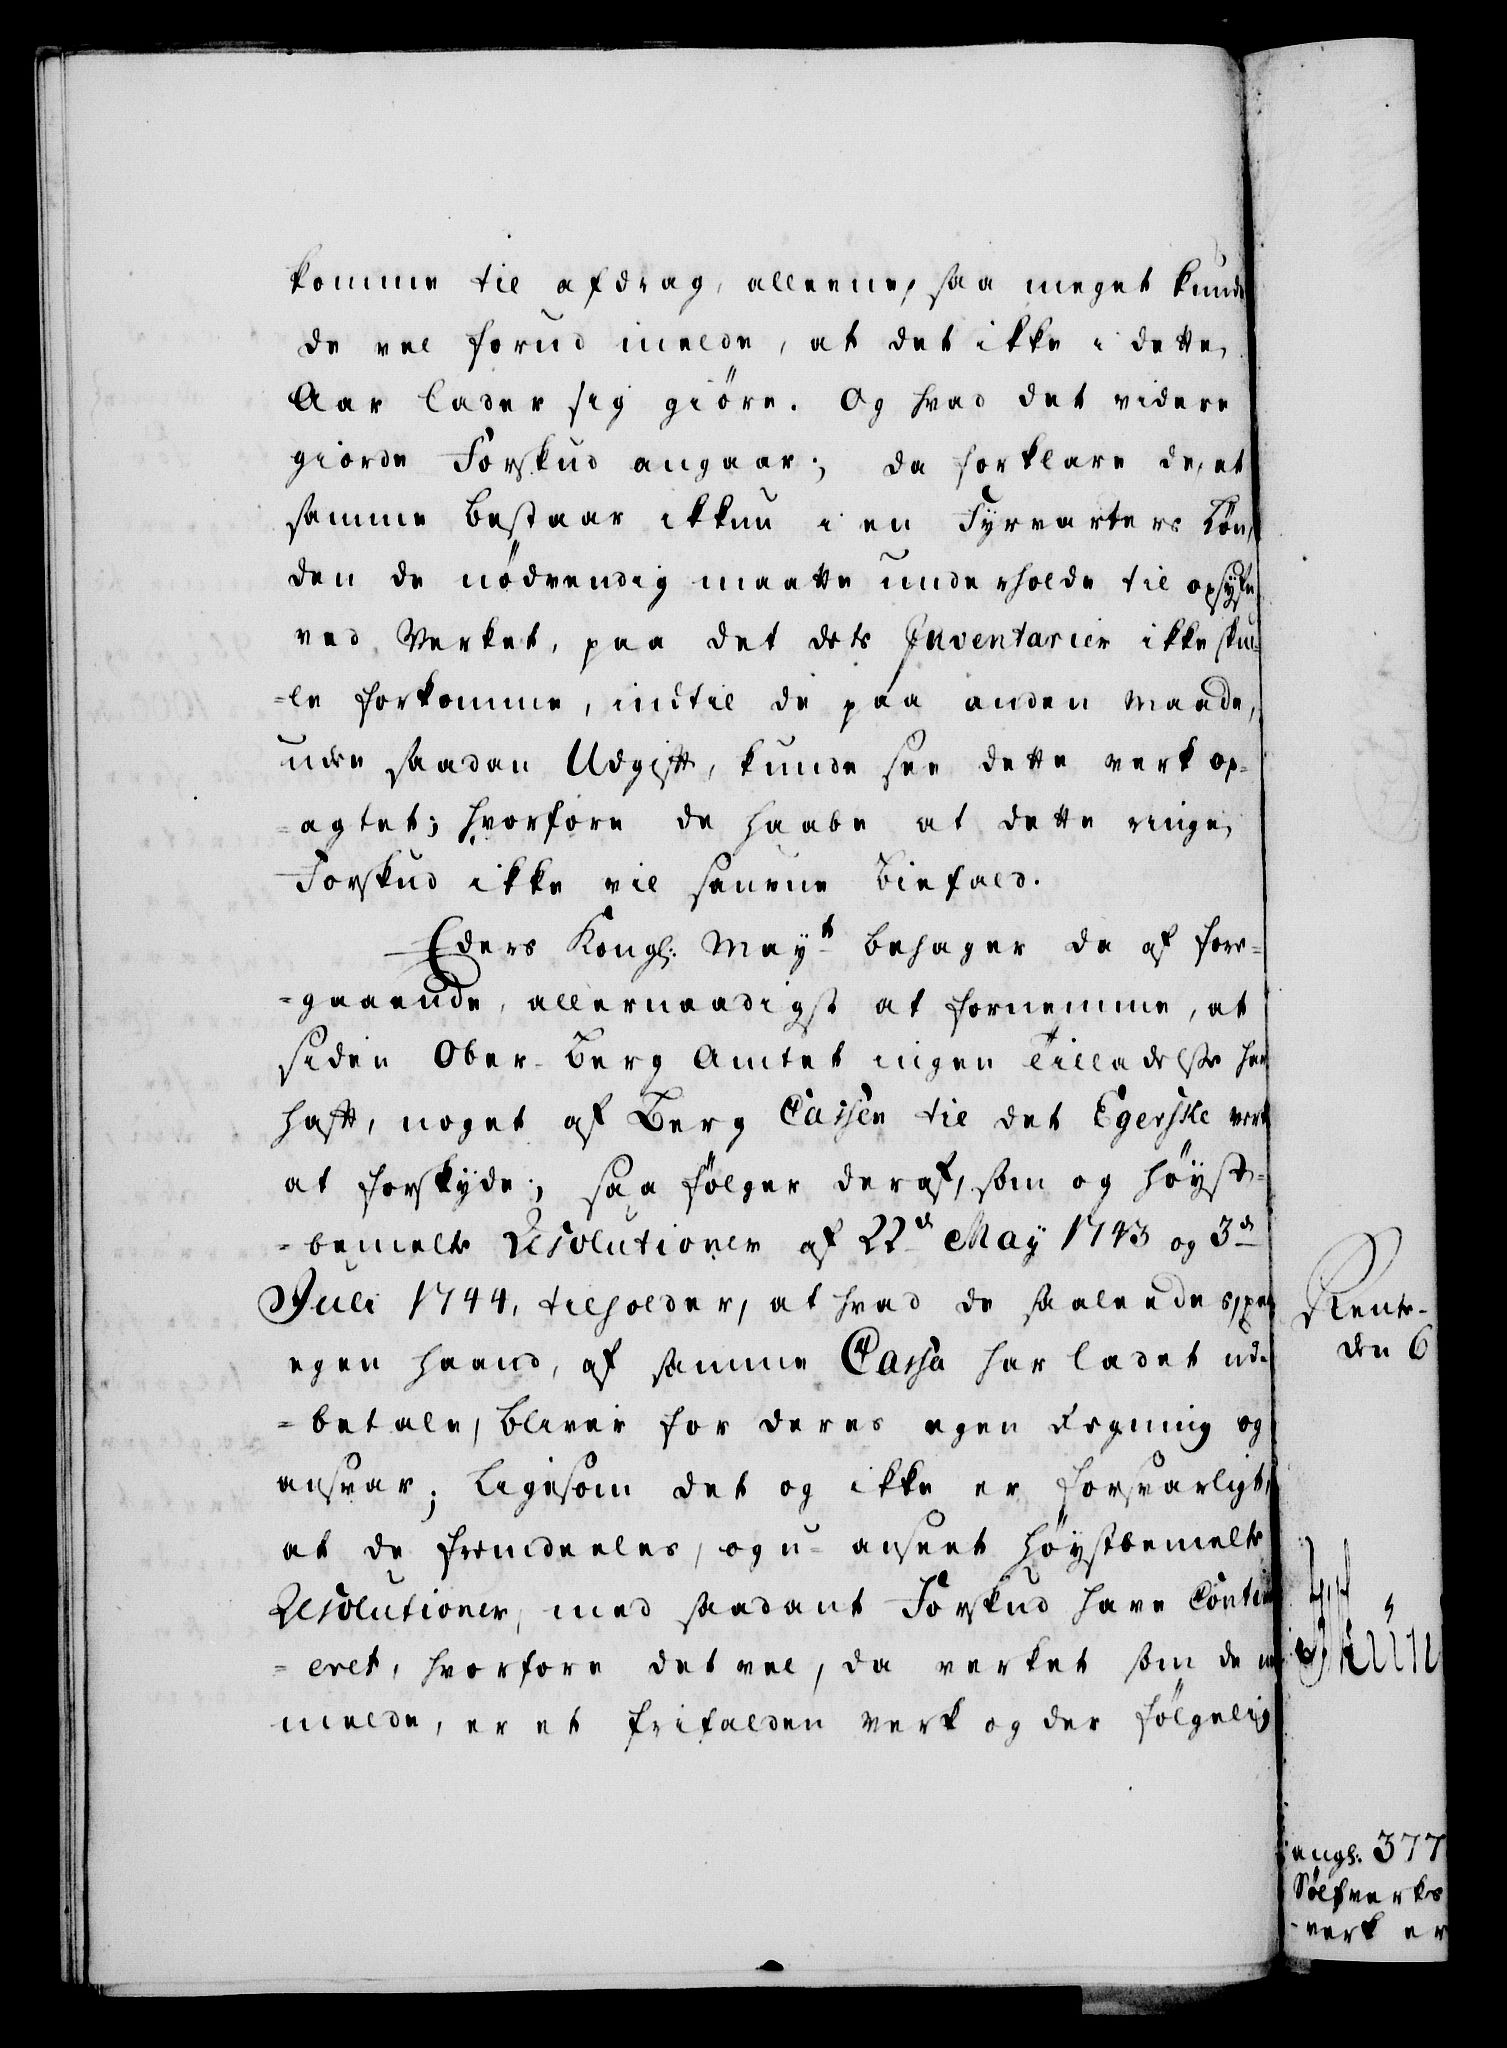 komme til afdrag, alleene, saa meget kunde
de vel forud melde, at det ikke i dette
Aar lader sig giöre. Og hvad det videre
giorde Forskud angaar; da forklare de, at
samme bestaar ikkun i en Fyrvarters Lön,
den de nödvendig maatte underholde til opsÿn
ved Verket, paa det dets Inventarier ikke skul-
-le forkomme, indtil de paa anden Maade,
uden saadan Udgift, kunde see dette verk op-
-agtet; hvorfore de haabe at dette ringe
Forskud ikke vil savne Biefald.
Eders Kongl: Mayt behager da af fore-
-gaaende, allernaadigst at fornemme, at
siden Ober-Berg Amtet ingen Tilladelse har
haft, noget af Berg Cassen til det Egerske verk
at forskyde; saa fölger deraf, som og höyst-
-bemelte Resolutioner af 22de May 1743 og 3de
Juli 1744, tilholder, at hvad de saaleedes, paa
egen haand, af samme Cassa har ladet ud-
-betale, bliver for deres egen Regning og
ansvar; Ligesom det og ikke er forsvarligt,
at de fremdeeles, og u-anseet höystbemelte
Resolutioner, med saadant Forskud have Contin
-eret, hvorfore det vel, da verket som de
melde, er et frifalden Verk og der fölgelig
Rente-
den 6
angl: 377
Sölfverks
-verk er